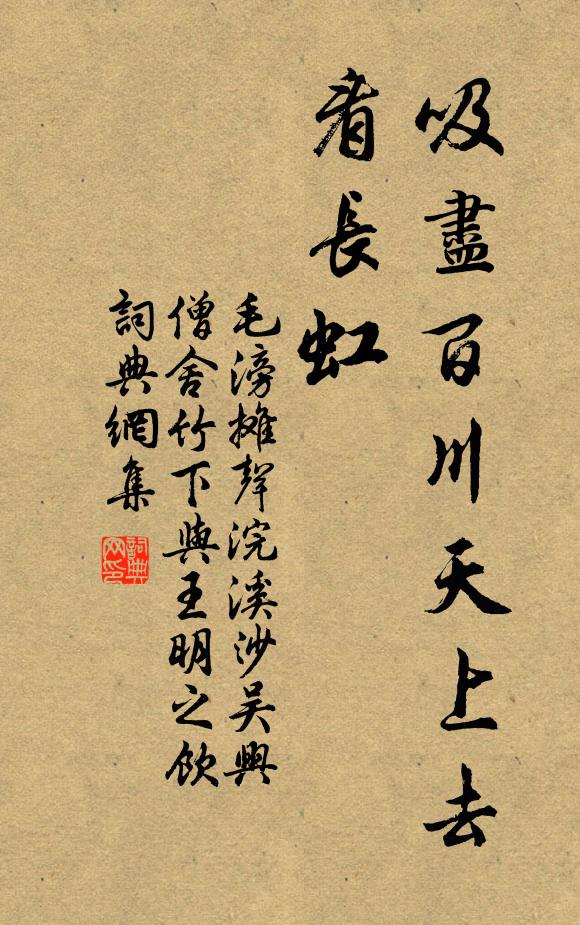 吸盡百川天上去
看長虹
毛滂攤聲浣溪沙吴興
僧舍竹下與王明之飲
詞典網集
詞典
网印